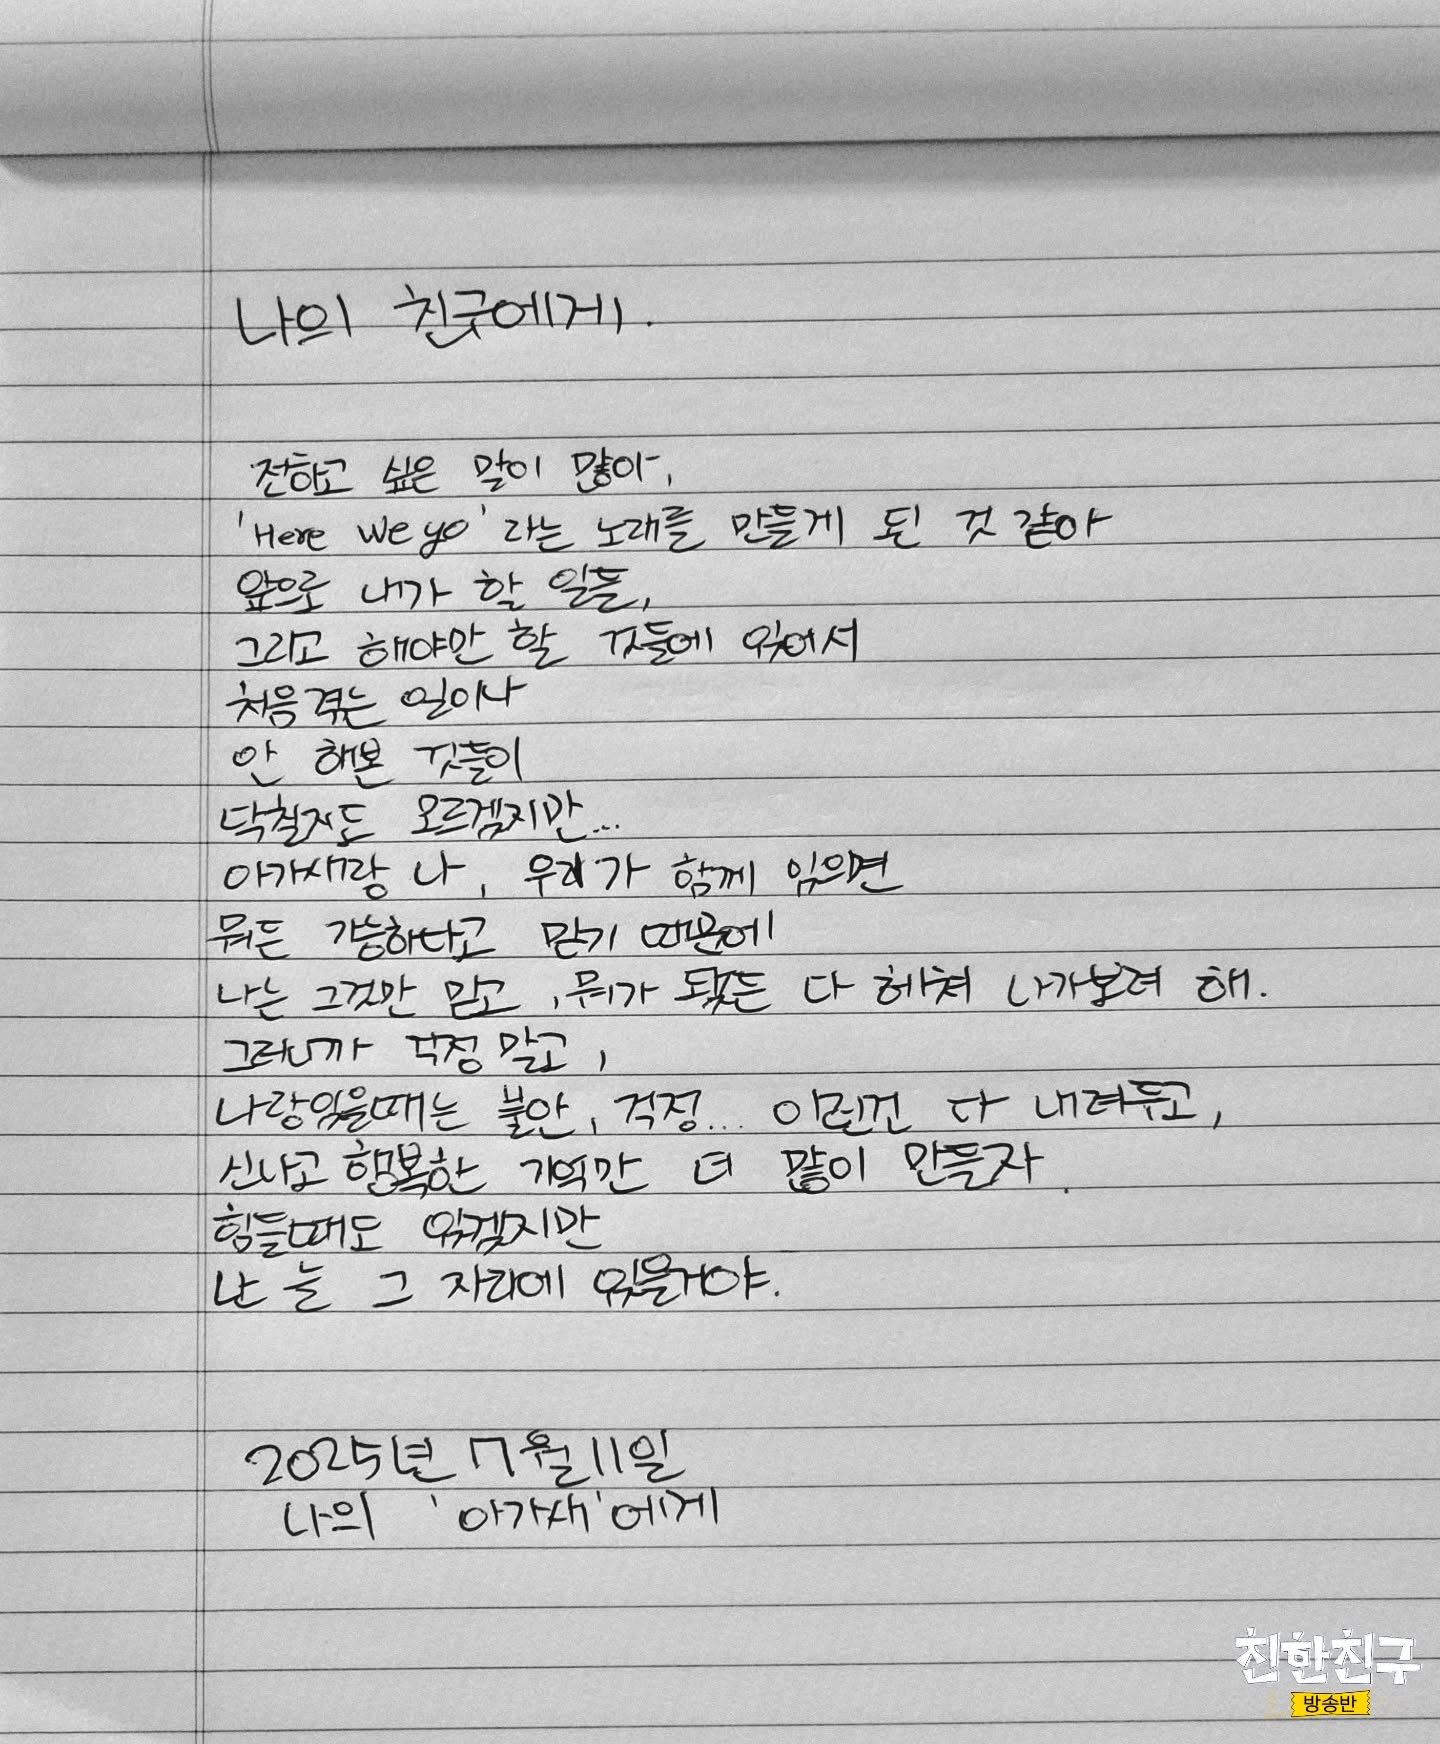 나의 친굿에게.
전하고 싶은 말이 많아,
'Here we go'라는 노래를 만들게 된 것 같아
앞으로 내가 할 일들,
그리고 해야만 할 것들에 있어서
처음겪는 일이나
안 해본 것들이
닥칠지도 모르겠지만...
아가새랑 나, 우리가 함께 있으면
뭐든 가능하다고 믿기 때문에
나는 그것만 믿고, 뭐가 됐든 다 헤쳐 나가보려 해.
그러니까 걱정말고,
나랑있을때는 불안, 걱정... 이런건 다 내려두고,
신나고 행복한 기억만 더 많이 만들자.
힘들때도 있겠지만
난 늘 그 자리에 있을거야.
2025년 7월 11일
나의 '아가새'에게
친한친구
방송반